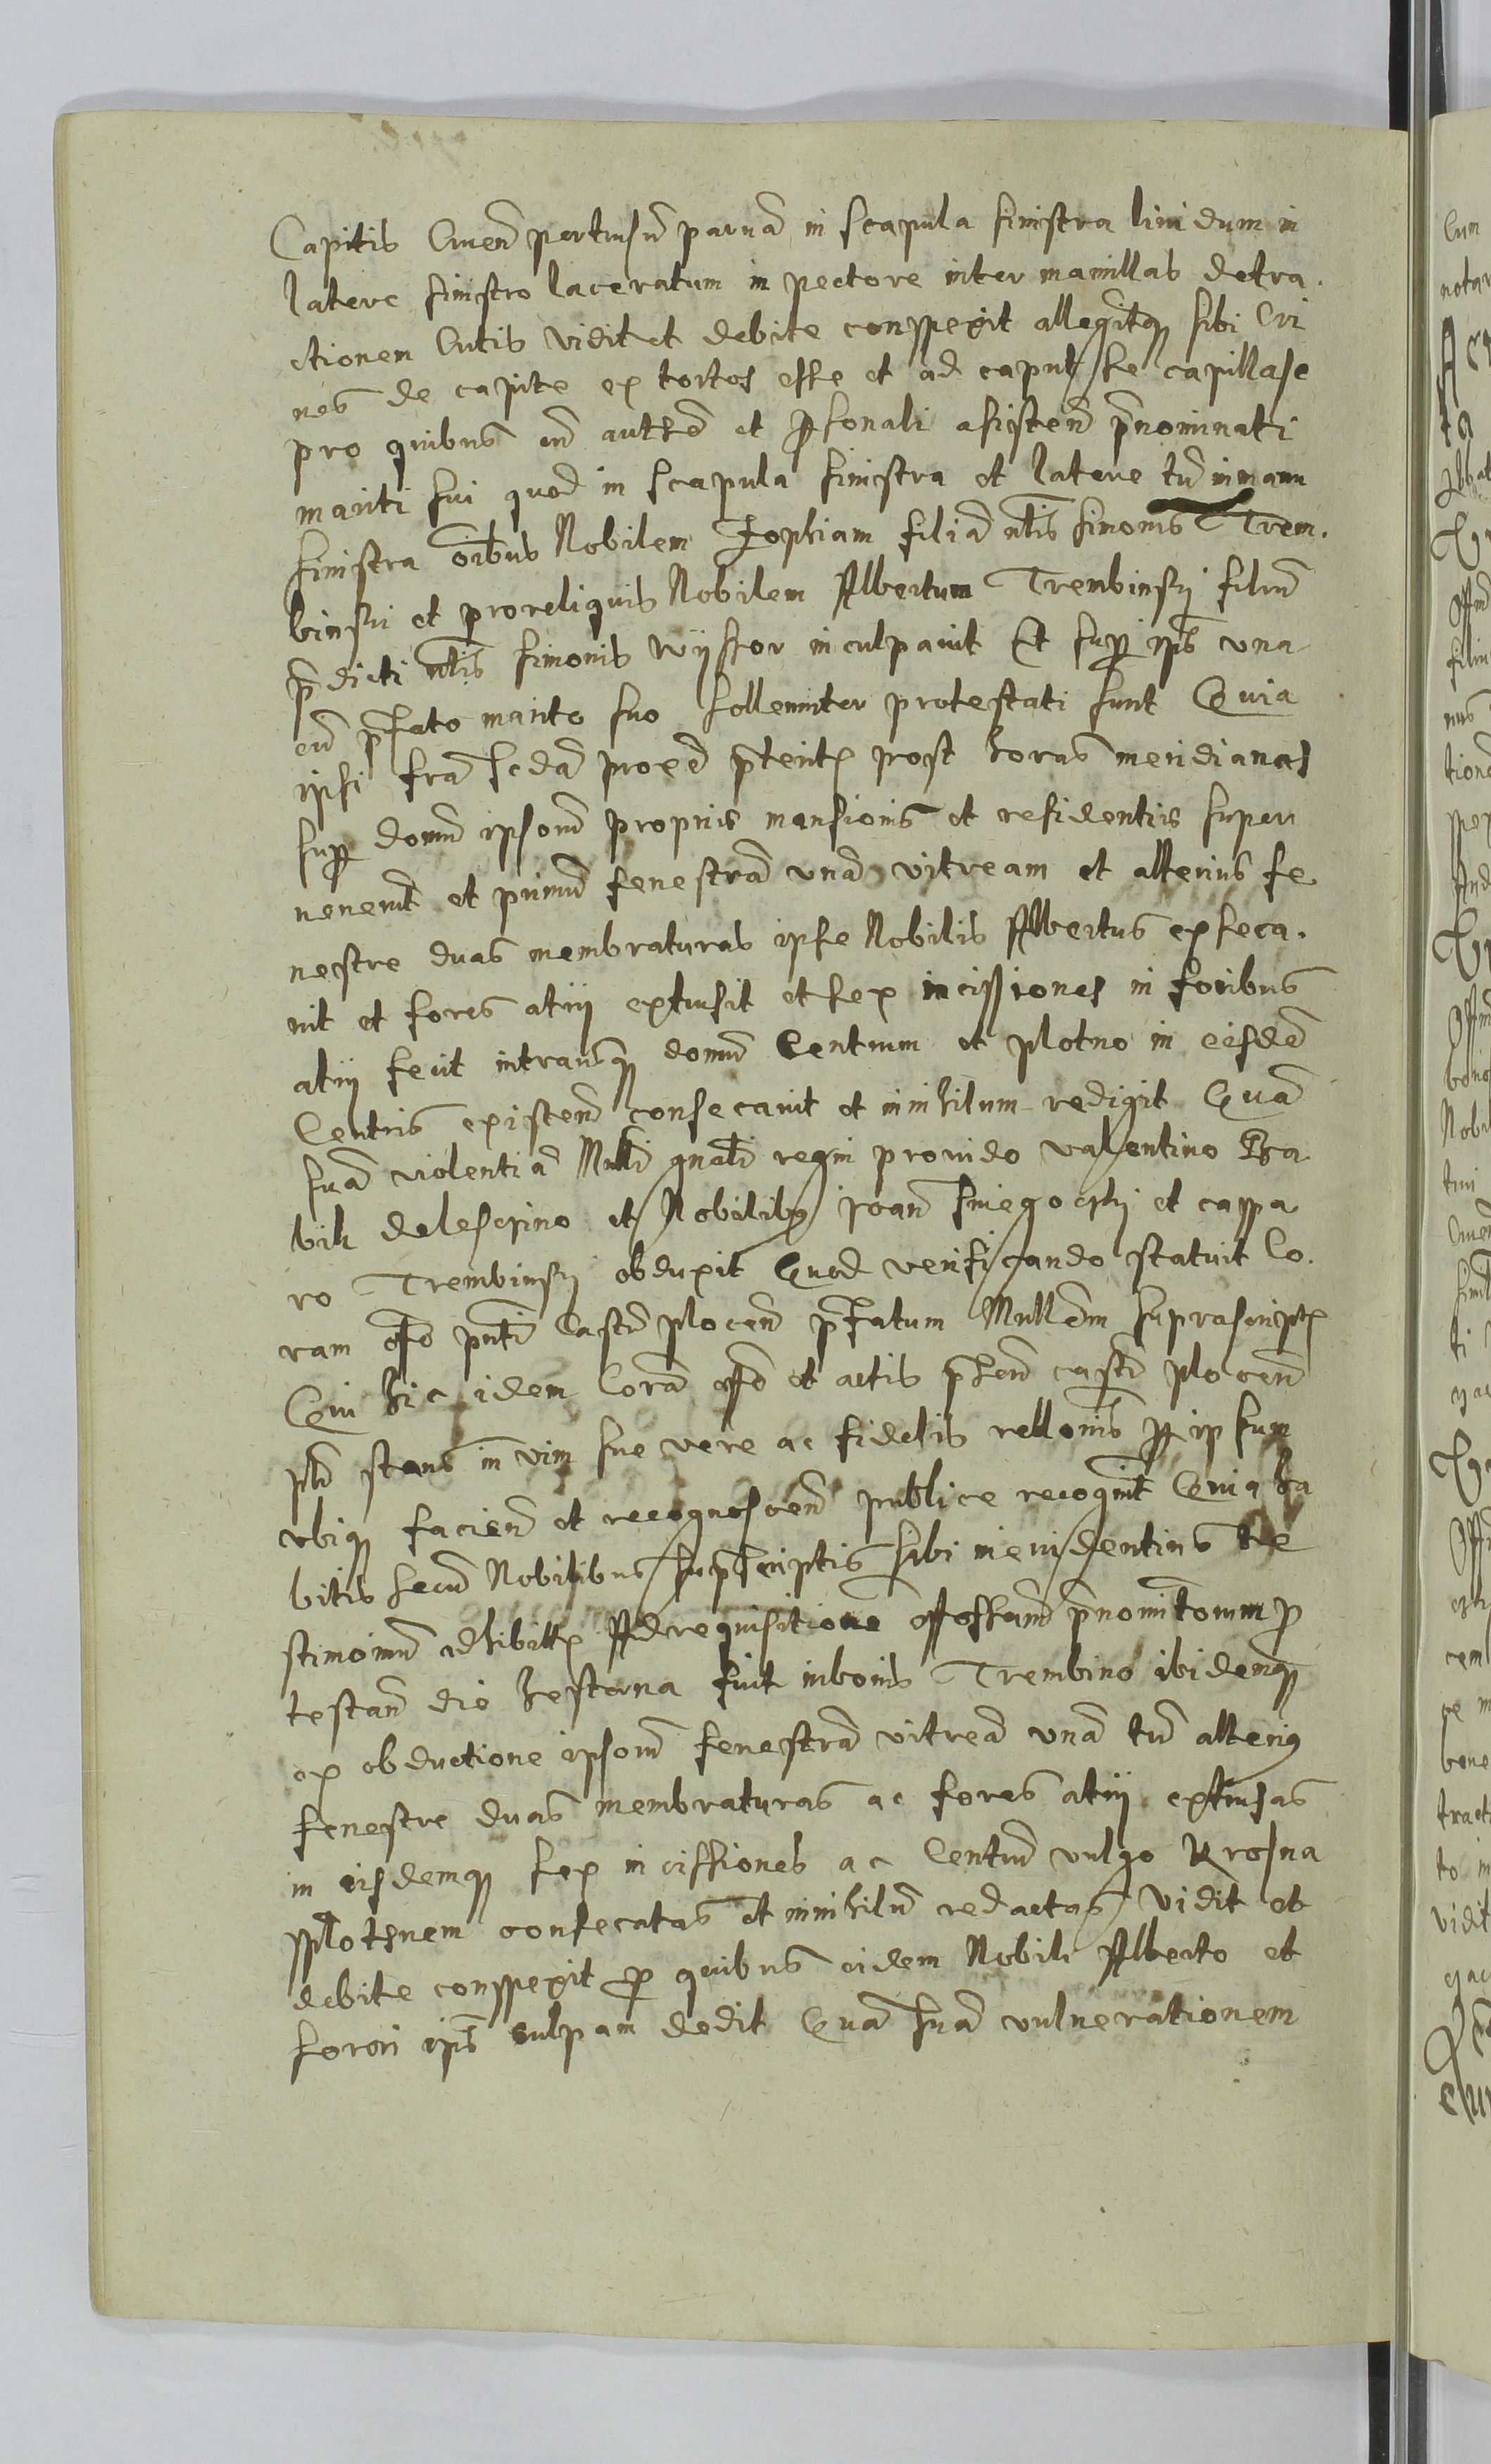 Capitis Cruen pertusu parva in scapula sinistra lividum in
latere sinistro laceratum in pectore inter mamillas detra
ctionem Cutis vidit et debite conspexit allegavitq sibi Cri
nes de capite extortos esse et ad caput se capillase
pro quibus cum authe et psonali asisten pnominati
mariti sui quod in scapula sinistra et latere tu in manu
sinistra oibus Nobilem Zophiam filia nblis Simonis Trem
binski et pro reliquis Nobilem Albertum Trembinski filium
pdicti nblis Simonis wijskor inculpavit Et sup ipis una
cu pfato marito suo sollemniter protestati sunt Quia
ipsi fra scda proxe pterita post horas meridianas
sup domu ipsoru propriis mansionis et residentiis superu
venerut et primu fenestra una vitream et alterius fe
nestre duas membraturas ipse Nobilis Albertus exseca
vit et fores atrij extrusit et sex incissiones in foribus
atrij fecit intravitq domu Centrum et plotno in eisde
Centris existen consecavit et in nihilum redigit Qua
sua violentia Mnlli gnali regni provido valentino Ba
bik de lesczino et Nobilibus joan sniegoczki et caspa
ro Trembinski obduxit Quod verificando statuit Co
ram offo pnti Castri plocen pfatum Mnllem suprascripti
Qui hic idem Cora offo et actis phen castri plocen
psti stans in vim sue vere ac fidelis rellonis p ipsum
ubiq facien et recognoscen publice recognvit Quia ha
bitis secu Nobilibus supscriptis sibi in evidentius te
stimoniu adhibitis Ad requisitione offessam pnomitorum p
testan die hesterna fuit in bonis Trembino ibidemq
ex obductione ipsoru fenestra vitrea una tu alterius
fenestre duas membraturas ac fores atrij extrusas
in eisdemq sex incissiones ac Centru vulgo Krosna
splothnem consecatas et in nihilu redactas vidit et
debite conspexit p quibus eidem Nobili Alberto et
sorori ipis culpam dedit Qua sua vulnerationem